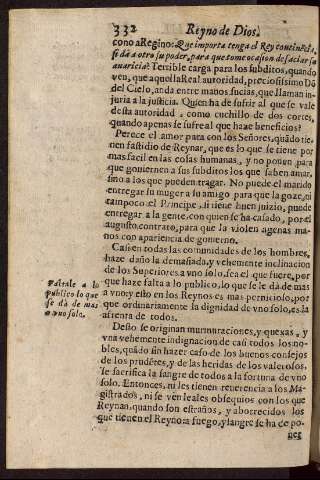 332 Reyno de Dios.
cono a Regino: Que importa tenga el Rey continẽcia,
si dà a otro su poder, para que tome ocasion de saciar su
auaricia? Terrible carga para los subditos, quando
ven, que aquella Real autoridad, preciosissimo Dõ
del Cielo, anda entre manos sucias, que llaman in-
juria a la justicia. Quien ha de sufrir al que se vale
desta autoridad, como cuchillo de dos cortes,
quando apenas se sufre al que haze beneficios?
Perece el amor para con los Señores, quãdo tie-
nen fastidio de Reynar, que es lo que se tiene por
mas facil en las cosas humanas, y no ponen para
que gouiernen a sus subditos los que saben amar,
sino a los que pueden tragar. No puede el marido
entregar su muger a su amigo para que la goze, ni
tampoco el Principe, si tiene buen juizio, puede
entregar a la gente, con quien se ha casado, por el
augusto contrato, para que la violen agenas ma-
nos con apariencia de gouierno.
Casi en todas las comunidades de los hombres,
haze daño la demasiada, y vehemente inclinacion
de los Superiores a vno solo, sea el que fuere, por
que haze falta a lo publico, lo que se le dà de mas
a vno: y esto en los Reynos es mas pernicioso, por
que ordinariamente la dignidad de vno solo, es la
afrenta de todos.
Faltale a lo
publico lo que
se dà de mas
a vno solo.
Desto se originan murmuraciones, y quexas, y
vna vehemente indignacion de casi todos los no-
bles, quãdo sin hazer caso de los buenos consejos
de los prudẽtes, y de las heridas de los valerosos,
se sacrifica la sangre de todos a la fortuna de vno
solo. Entonces, ni les tienen reuerencia a los Ma-
gistrados, ni se ven leales obsequios con los que
Reynan, quando son estraños, y aborrecidos los
que tienen el Reyno: a fuego, y sangre se ha de po-
ner